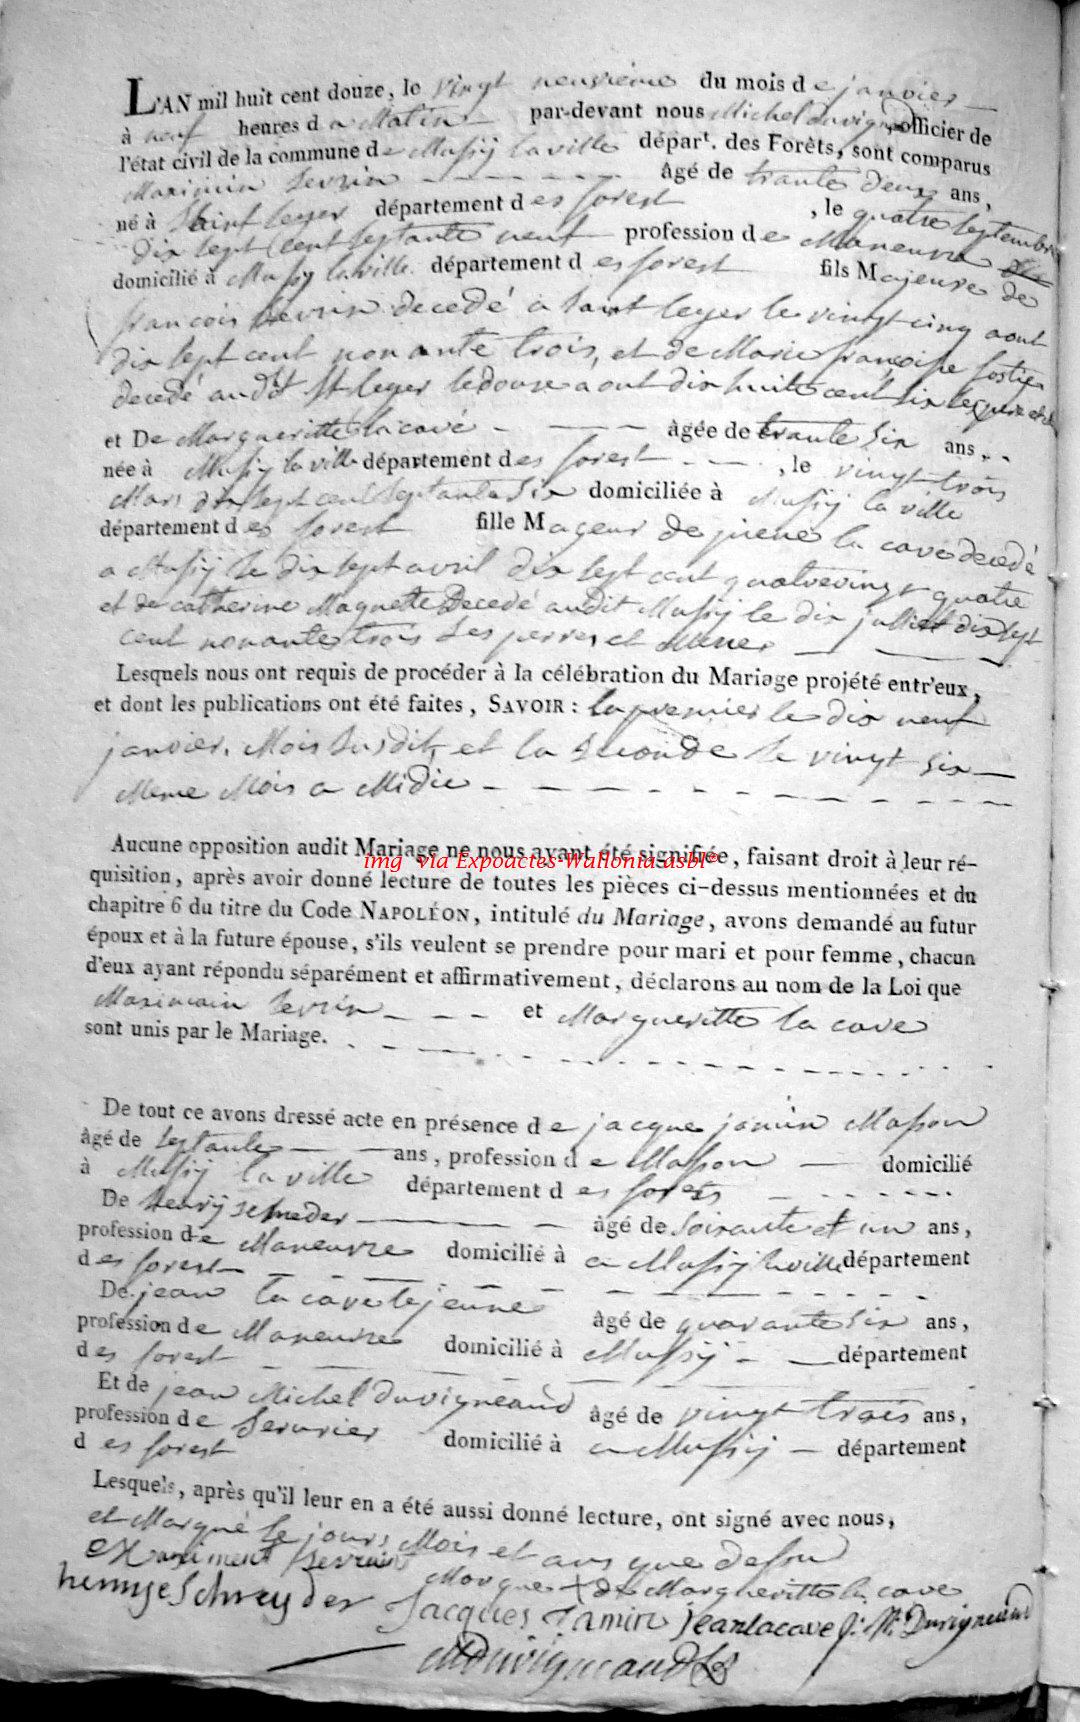 L'AN mil huit cent douze, le vingt neuvième du mois de janvier
à neuf heures du Matin par-devant nous Michel duvigneaud officier de
l'état civil de la commune de Mussÿ la ville départ. des Forêts, sont comparus
Maximin Sevrin âgé de trante deux ans,
né à Saint leger département des forest , le quatre septembre
dix sept cent septante neuf profession de Maneuvre
domicilié à Mussy la ville département des forest fils Majeure de
francois Sevrin decedé a saint leger le vingt cinq aout
dix sept cent nonante trois, et de Marie francoise
decedé audit St leger le douse aout dix huite cent six les pere et
et De Margueritte la cave âgée de trante six ans,
née à Mussÿ la ville département des forest , le vingt trois
Mars dix sept cent septante six domiciliée à Mussÿ la ville
département des forest fille Mageur de piere la cave decedé
a Mussÿ le dix sept avril dix sept cent quatrevingt quatre
et de catherine Maquette Decedé audit Mussÿ le dix julliet dix sept
cent nonante trois ses perres et Meres
Lesquels nous ont requis de procéder à la célébration du Mariage projété entr'eux,
et dont les publications ont été faites, SAVOIR : la premier le dix neuf
janvier, Mois susdit, et la seconde le vingt six
Meme Mois a Midie
Aucune opposition audit Mariage ne nous ayant été signifiée, faisant droit à leur ré-
img via Expoactes-Wallonia-asbl®
quisition, après avoir donné lecture de toutes les pièces ci-dessus mentionnées et du
chapitre 6 du titre du Code NAPOLÉON, intitulé du Mariage, avons demandé au futur
époux et à la future épouse, s'ils veulent se prendre pour mari et pour femme, chacun
d'eux ayant répondu séparément et affirmativement, déclarons au nom de la Loi que
Maximain Sevrin et Margueritte la cave
sont unis par le Mariage.
De tout ce avons dressé acte en présence de jacque jamin Masson
âgé de septante ans, profession de Masson domicilié
à Mussÿ la ville département des forets
De henrÿ schneder âgé de soixante et un ans,
profession de Maneuvre domicilié à a Mussÿ la ville département
des forest
De jean la cave le jeune âgé de quarante six ans,
profession de Maneuvre domicilié à Mussÿ département
des forest
Et de jean Michel Duvigneaud âgé de vingt trois ans,
profession de Serurier domicilié à a Mussÿ département
des forest
Lesquels, après qu'il leur en a été aussi donné lecture, ont signé avec nous,
et Marqué le jours Mois et ans que dessu
Maximent Sevrin Marque X de Margueritte la cave
hennrye Schneyder Jacques Jamin jean lacave J: M: Duvigneaud
MDuvigneaud